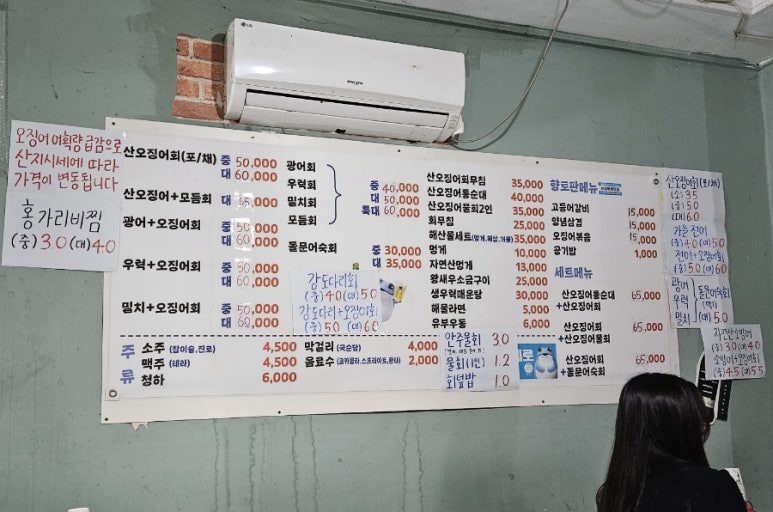 LG
오징어 어획량 급감으로
산지시세에 따라
가격이 변동됩니다
홍가리비찜
(중) 30 (대) 40
산오징어회(포/채) 중 50,000
대 60,000
산오징어+모듬회 중
대 65,000
광어+오징어회 중 50,000
대 60,000
우럭+오징어회 중 50,000
대 60,000
밀치+오징어회 중 50,000
대 60,000
광어회
우럭회
밀치회
모듬회
중 40,000
대 50,000
특대 60,000
돌문어숙회 중 30,000
대 35,000
강도다리회
(중) 40 (대) 50
강도다리+오징어회
(중) 50 (대) 60
산오징어회무침 35,000
산오징어통순대 40,000
산오징어물회2인 35,000
회무침 25,000
해산물세트(멍게,해삼,개불) 35,000
멍게 10,000
자연산멍게 13,000
왕새우소금구이 25,000
생우럭매운탕 30,000
해물라면 5,000
유부우동 6,000
안주물회 30
물회(1인) 1.2
회덮밥 1.0
향토판메뉴
고등어갈비 15,000
양념삼겹 15,000
오징어볶음 15,000
공기밥 1,000
세트메뉴
산오징어통순대 65,000
+산오징어회
산오징어회 65,000
+산오징어물회
산오징어회 65,000
+돌문어숙회
주류
소주 (참이슬,진로) 4,500
맥주 (테라) 4,500
청하 6,000
막걸리 (국순당) 4,000
음료수 (코카콜라,스프라이트,환타) 2,000
산오징어회(포/채)
(소) 35
(중) 50
(대) 60
가을 전어
(중) 40 (대) 50
전어+오징어회
(중) 50 (대) 60
광어
우럭
밀치
돌문어숙회
(대) 50
자연산오징어
(중) 30 (대) 40
(중) 45 (대) 55